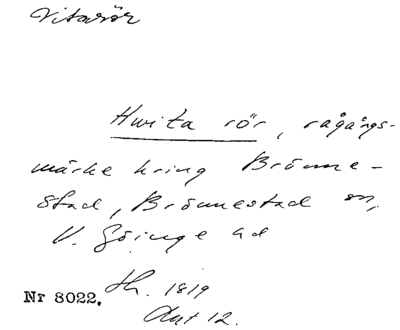 Vitarör
Hwita rör, rågångs-
märke kring Brönne-
stad, Brönnestad sn,
V. Göinge hd
Nr 8022. Hh. 1819
Akt 12.